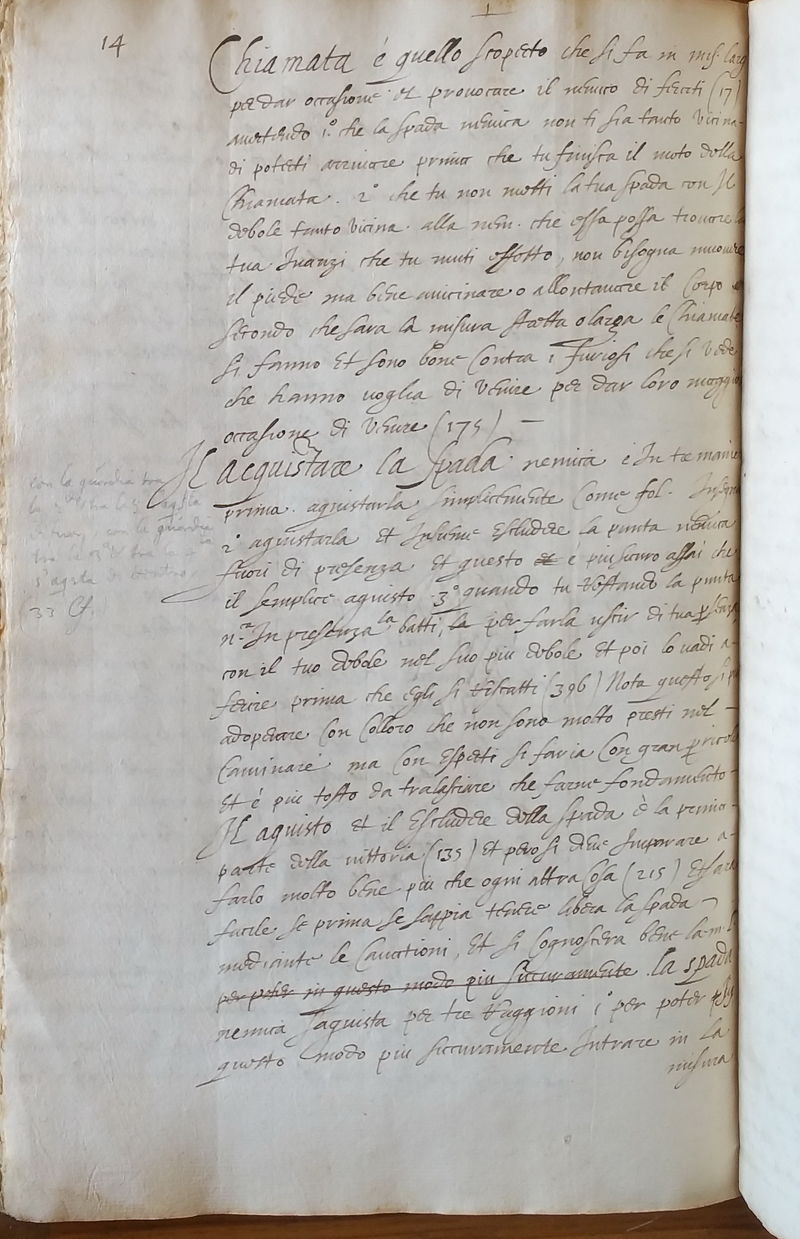 14
Chiamata é quello scoperto che si fa in mis. larg
per dar occasione et provocare il nemico di ferirti (17
avertendo 1.º che la spada nemica non ti sia tanto vicina
di poterti arrivare prima che tu finisca il moto della
Chiamata. 2º che tu non metti la tua spada con Il
debole tanto vicina alla nem. che essa possa trovare la
tua Inanzi che tu muti effetto, non bisogna muovere
il piede ma bene avicinare o allontanare il Corpo
secondo che sara la misura stretta o larga le Chiamate
si fanno Et sono bone Contra i furiosi che si vede
che hanno voglia di venire per dar loro maggior
occasione di venire (175) —
Il acquistare la spada nemica é In tre manie
prima aquistarla simplicemente Come sol. Insegna
2º aquistarla Et Insieme Escludere la punta nemica
fuori di presenza Et questo é piu sicuro assai che
il semplice aquisto 3º quando tu restando la punta
n.ca In presenza la batti, la per farla uscir di tua presenza
con il tuo debole nel suo piu debole Et poi lo vadi a
ferire prima che egli si riscatti (396) Nota questo si
adoperare Con Colloro che non sono molto presti nel —
Caminare ma Con Esperti si faria Con gran pericol
Et é piu tosto da tralasciare che farne fondamento
Il aquisto et il Escludere della spada é la prima
parte della vittoria (135) Et pero si deve Imparare a
farlo molto bene piu che ogni altra Cosa (215) Et sara
facile se prima se sappia tenere libera la spada
mediante le Cavationi, Et si Cognoscera bene la
per poter in questo modo piu siccuramente. la spada
nemica s'aquista per tre raggioni 1º per poter
questo modo piu siccuramente Intrare in la
misura
con la guardia tra
(33 Cf.)